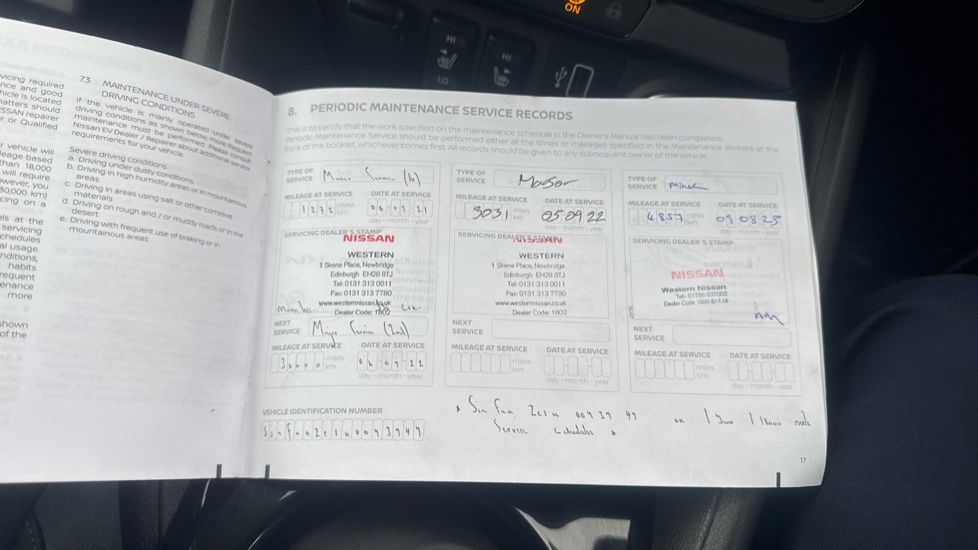 ON
HI
LO
HI
vicing required
nce and good
hicle is located
atters should
SSAN repairer
r or Qualified
r vehicle will
leage based
than 18,000
will require
owever, you
30,000 km)
cing on a
ls at the
servicing
chedules
al usage
nditions,
habits
equent
enance
more
shown
of the
73 MAINTENANCE UNDER SEVERE
DRIVING CONDITIONS
If the vehicle is mainly operated under severe
driving conditions as shown below, more frequent
maintenance must be performed. Please consult
Nissan EV Dealer / Repairer about additional service
requirements for your vehicle.
Severe driving conditions
a. Driving under dusty conditions
b. Driving in high humidity areas or in mountainous
areas
c. Driving in areas using salt or other corrosive
materials
d. Driving on rough and / or muddy roads or in the
desert
e. Driving with frequent use of braking or in
mountainous areas
8. PERIODIC MAINTENANCE SERVICE RECORDS
This is to certify that the work specified on the maintenance schedule in the Owner's Manual has been completed.
Periodic Maintenance Service should be performed either at the times or mileages specified in the Maintenance stickers at the
front of the booklet, whichever comes first. All records should be given to any subsequent owner of the vehicle.
TYPE OF
SERVICE
MILEAGE AT SERVICE DATE AT SERVICE
1272 miles
km 06 09 21
day - month - year
SERVICING DEALER'S STAMP
NISSAN
WESTERN
1 Skene Place, Newbridge
Edinburgh EH28 8TJ
Tel: 0131 313 0011
Fax: 0131 313 7780
www.westernnissan.co.uk
Dealer Code: 1802
NEXT
SERVICE
MILEAGE AT SERVICE DATE AT SERVICE
miles
km
day - month - year
TYPE OF
SERVICE Major
MILEAGE AT SERVICE DATE AT SERVICE
3031 miles
km 05 09 22
day - month - year
SERVICING DEALER'S STAMP
NISSAN
WESTERN
1 Skene Place, Newbridge
Edinburgh EH28 8TJ
Tel: 0131 313 0011
Fax: 0131 313 7780
www.westernnissan.co.uk
Dealer Code: 1802
NEXT
SERVICE
MILEAGE AT SERVICE DATE AT SERVICE
miles
km
day - month - year
TYPE OF
SERVICE
MILEAGE AT SERVICE DATE AT SERVICE
4857 miles
km 09 08 23
day - month - year
SERVICING DEALER'S STAMP
NISSAN
Western Nissan
NEXT
SERVICE
MILEAGE AT SERVICE DATE AT SERVICE
miles
km
day - month - year
VEHICLE IDENTIFICATION NUMBER
17